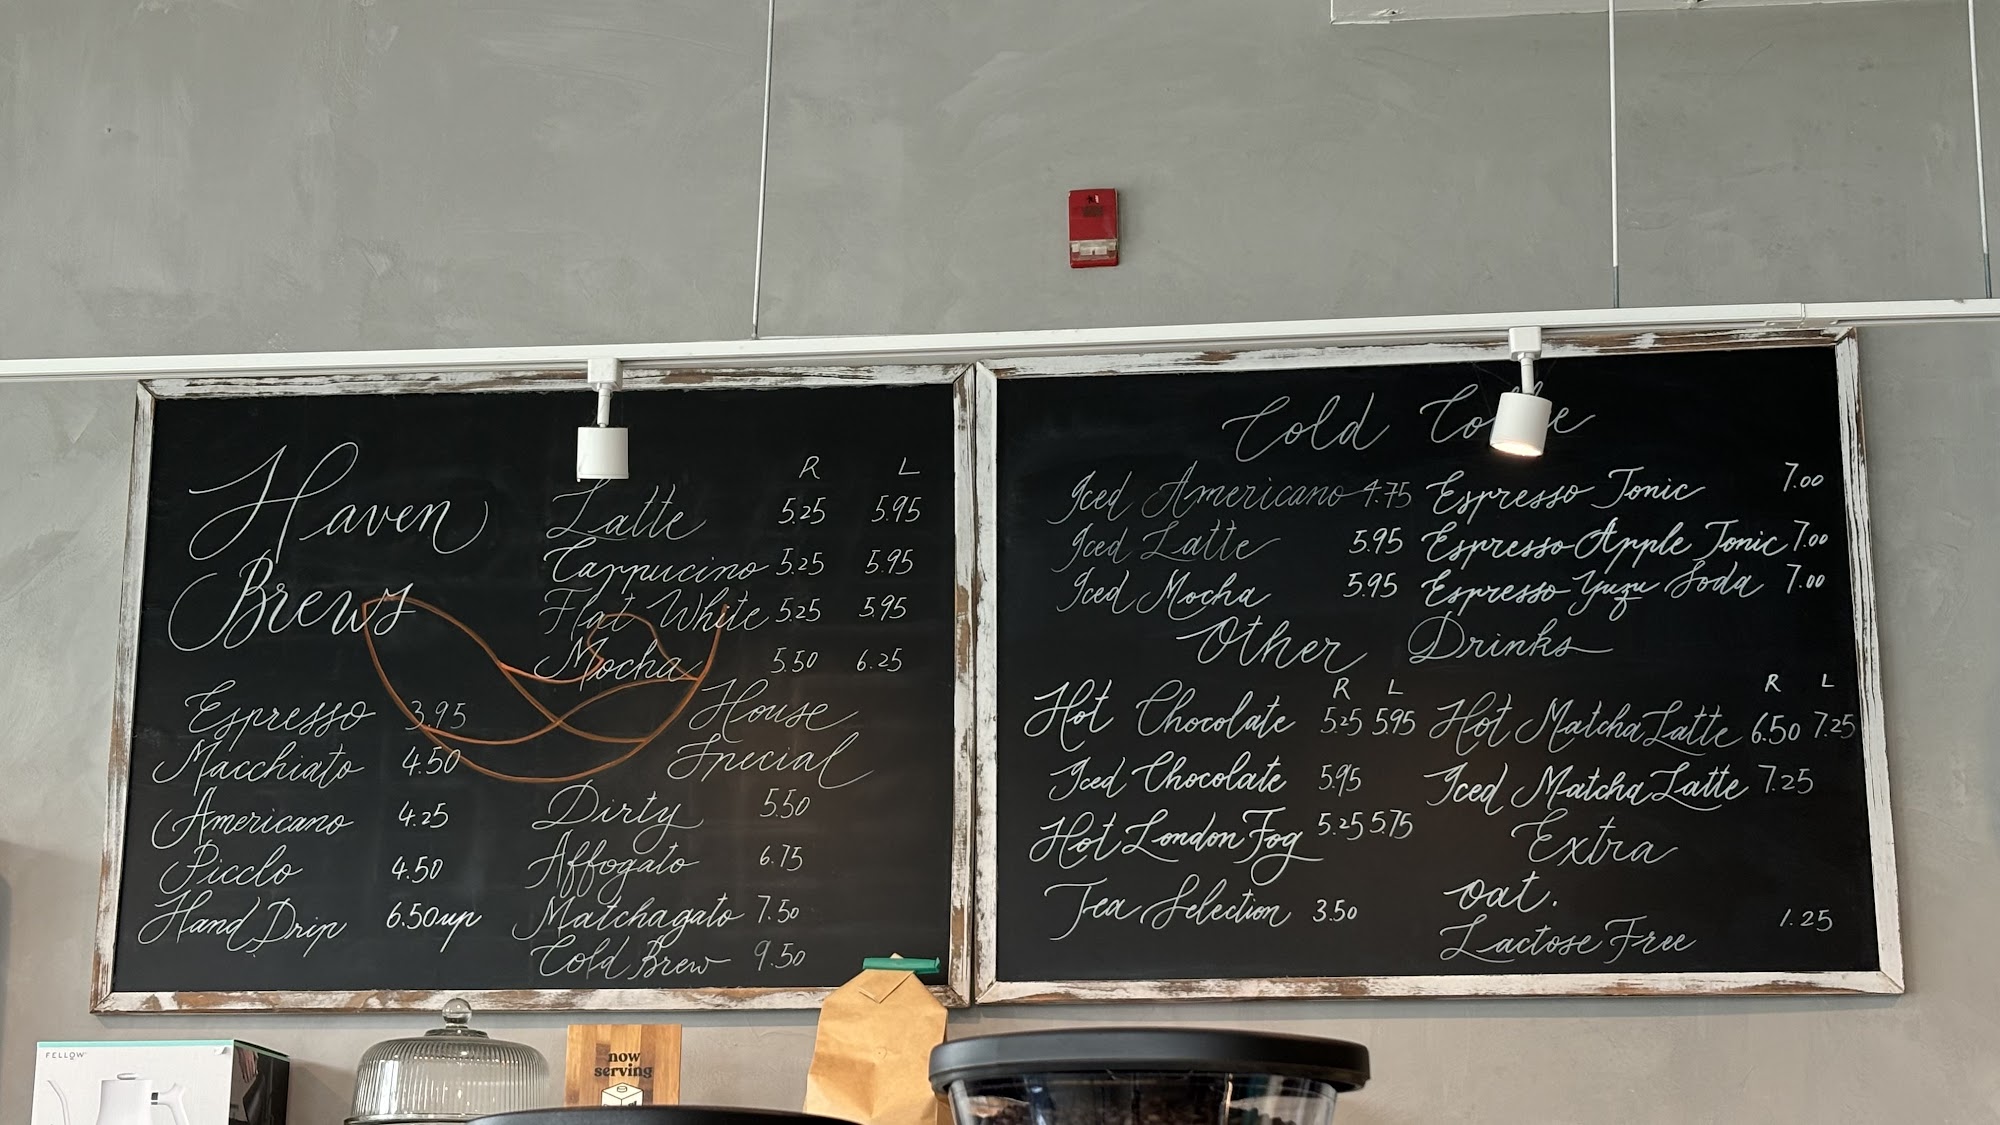 Haven
Brews
Espresso 3.95
Macchiato 4.50
Americano 4.25
Picclo 4.50
Hand Drip 6.50 up
R L
Latte 5.25 5.95
Cappucino 5.25 5.95
Flat White 5.25 5.95
Mocha 5.50 6.25
House
Special
Dirty 5.50
Affogato 6.75
Matchagato 7.50
Cold Brew 9.50
Cold
Iced Americano 4.75
Iced Latte 5.95
Iced Mocha 5.95
Espresso Tonic 7.00
Espresso Apple Tonic 7.00
Espresso Yuzu Soda 7.00
Other Drinks
R L
Hot Chocolate 5.25 5.95
Iced Chocolate 5.95
Hot London Fog 5.25 5.75
Tea Selection 3.50
R L
Hot Matcha Latte 6.50 7.25
Iced Matcha Latte 7.25
Extra
oat.
Lactose Free 1.25
FELLOW
now
serving